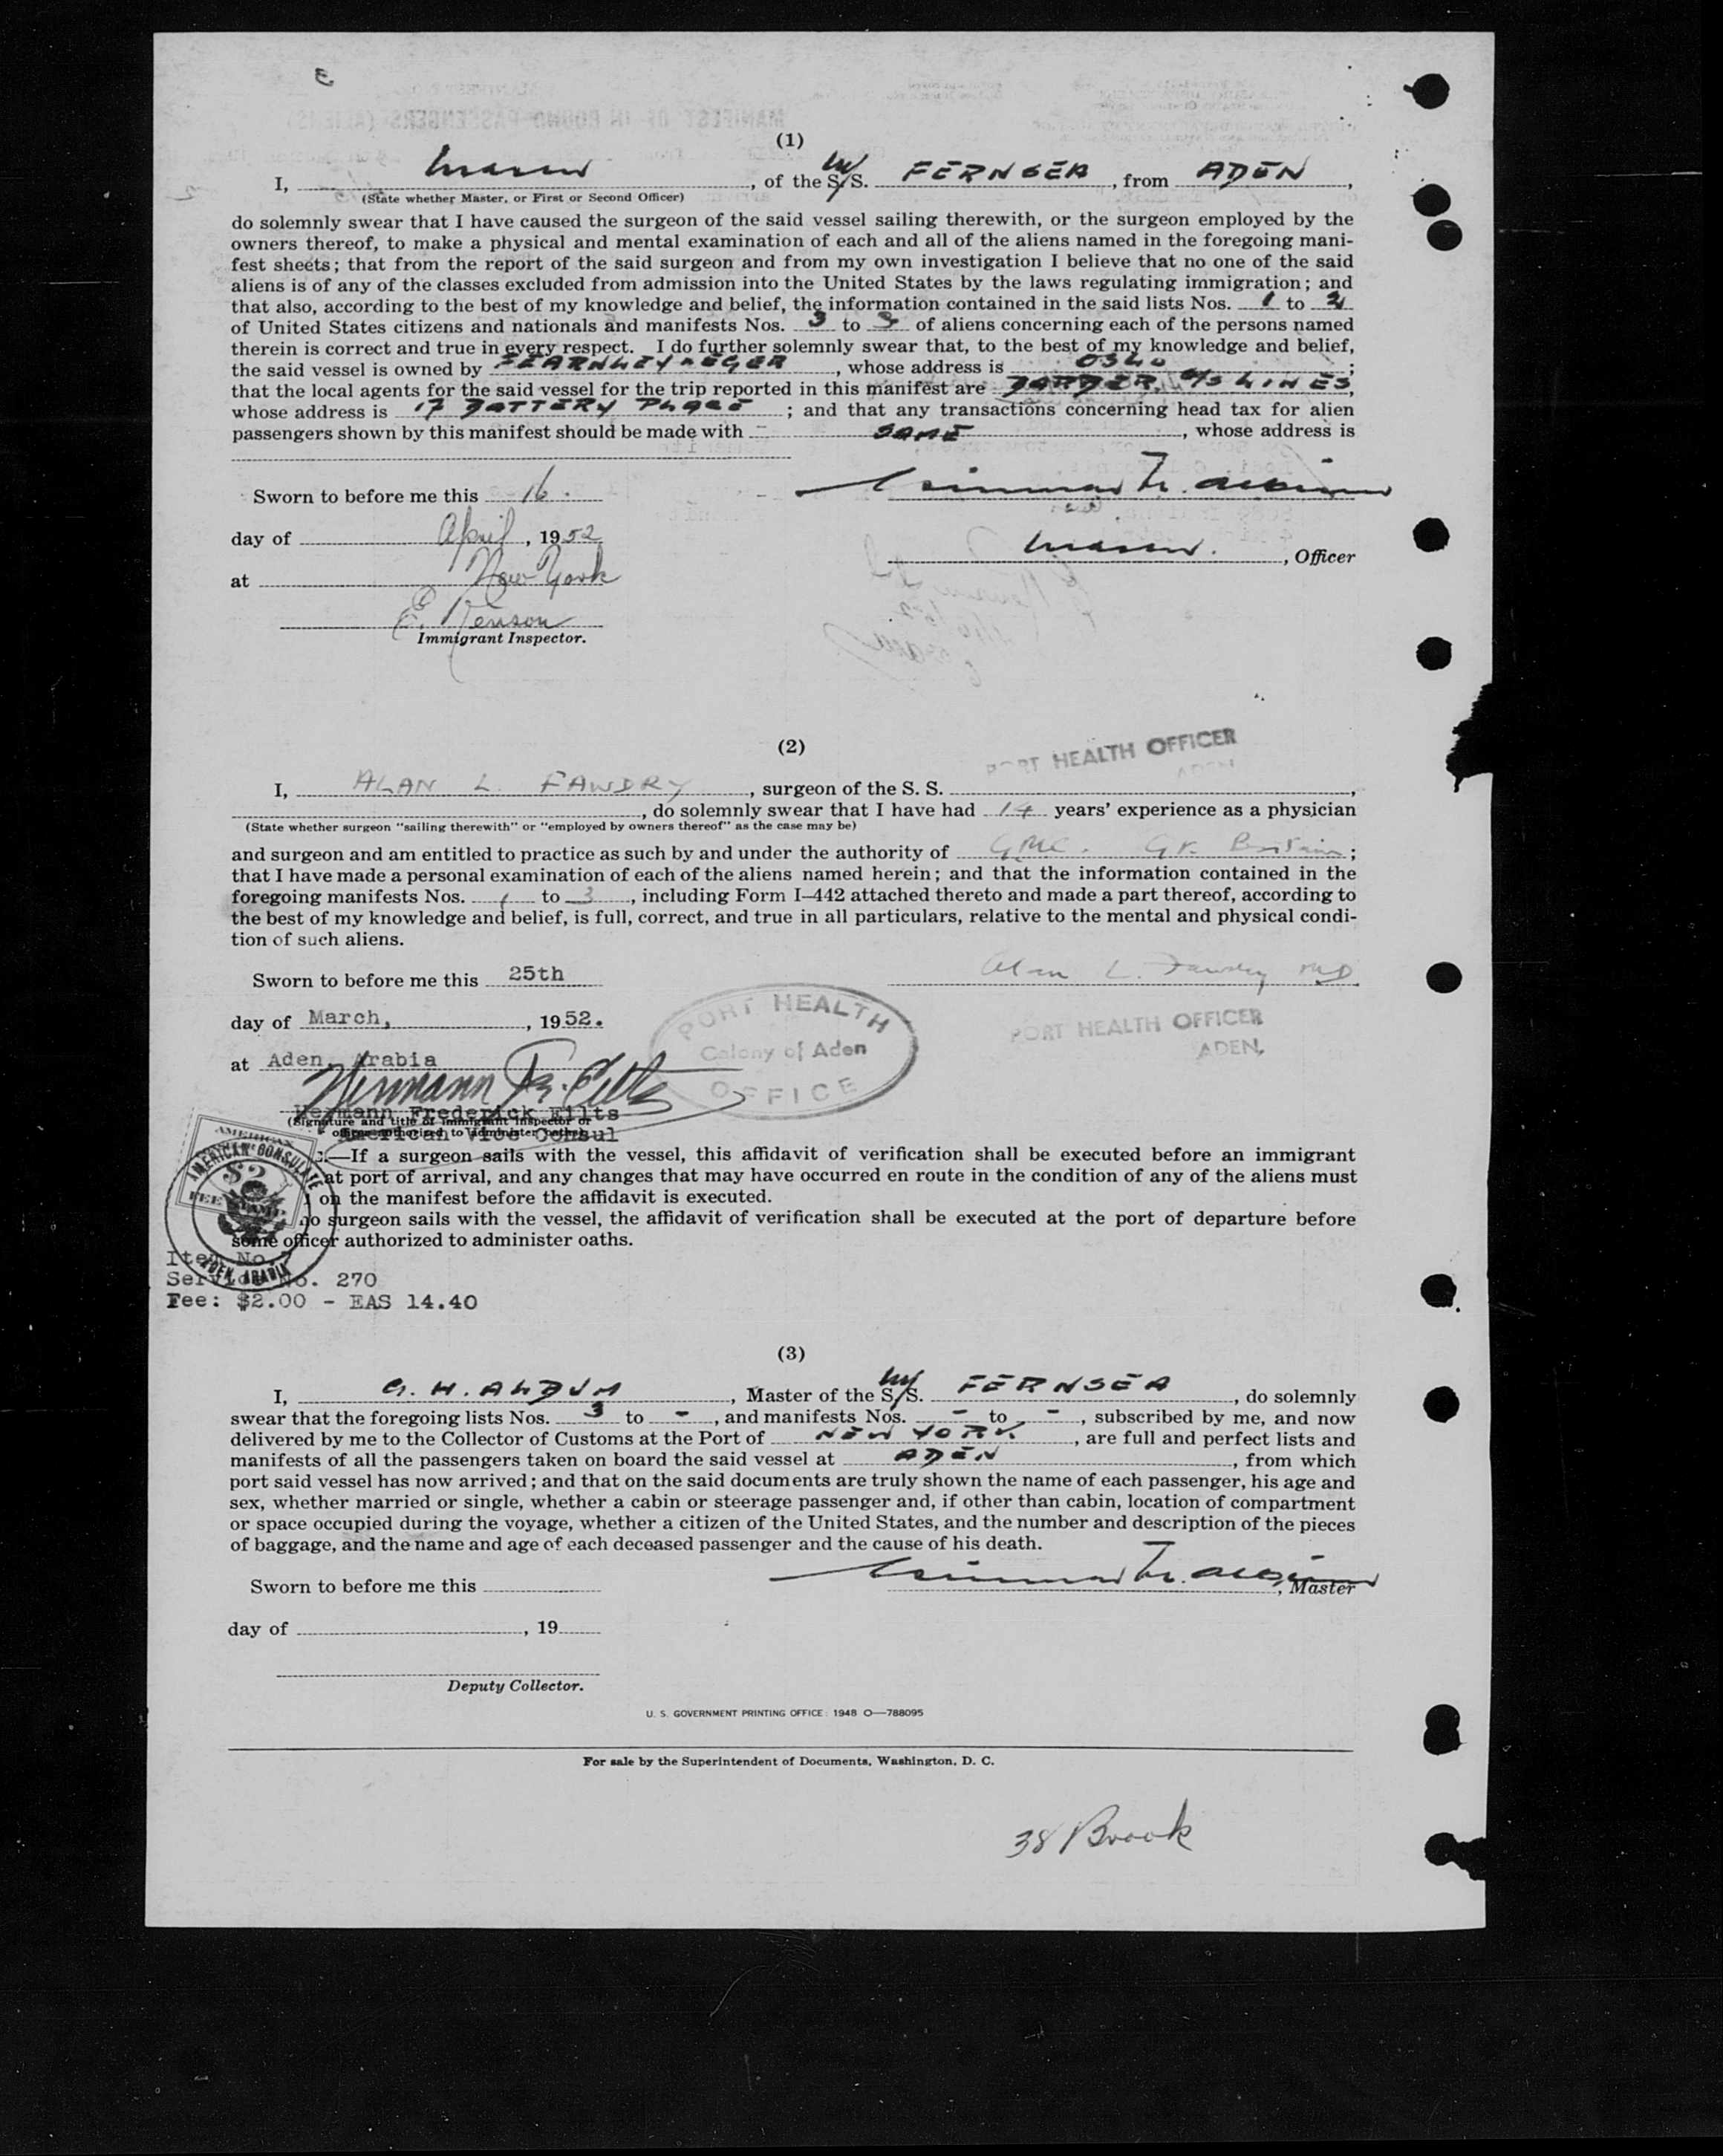 (1)
I, Master, of the M/S. FERNSEA, from ADEN,
(State whether Master, or First or Second Officer)
do solemnly swear that I have caused the surgeon of the said vessel sailing therewith, or the surgeon employed by the
owners thereof, to make a physical and mental examination of each and all of the aliens named in the foregoing mani-
fest sheets; that from the report of the said surgeon and from my own investigation I believe that no one of the said
aliens is of any of the classes excluded from admission into the United States by the laws regulating immigration; and
that also, according to the best of my knowledge and belief, the information contained in the said lists Nos. 1 to 2
of United States citizens and nationals and manifests Nos. 3 to 3 of aliens concerning each of the persons named
therein is correct and true in every respect. I do further solemnly swear that, to the best of my knowledge and belief,
the said vessel is owned by FEARNLEY & EGER, whose address is OSLO;
that the local agents for the said vessel for the trip reported in this manifest are BARBER S/S LINES,
whose address is 17 BATTERY PLACE; and that any transactions concerning head tax for alien
passengers shown by this manifest should be made with SAME, whose address is
Sworn to before me this 16.
day of April, 1952
Master., Officer
at New York
E. Kenson
Immigrant Inspector.
(2)
PORT HEALTH OFFICER
ADEN
I, ALAN L. FAWDRY, surgeon of the S. S.
, do solemnly swear that I have had 14 years' experience as a physician
(State whether surgeon "sailing therewith" or "employed by owners thereof" as the case may be)
and surgeon and am entitled to practice as such by and under the authority of GMC. Gr. Britain;
that I have made a personal examination of each of the aliens named herein; and that the information contained in the
foregoing manifests Nos. 1 to 3, including Form I-442 attached thereto and made a part thereof, according to
the best of my knowledge and belief, is full, correct, and true in all particulars, relative to the mental and physical condi-
tion of such aliens.
Sworn to before me this 25th
Alan L. Fawdry MD
day of March, 1952.
PORT HEALTH OFFICER
ADEN.
PORT HEALTH
Colony of Aden
OFFICE
at Aden, Arabia
Hermann Fr. Eilts
Hermann Frederick Eilts
(Signature and title of immigrant inspector or
officer authorized to administer oaths)
American Vice Consul
.—If a surgeon sails with the vessel, this affidavit of verification shall be executed before an immigrant
at port of arrival, and any changes that may have occurred en route in the condition of any of the aliens must
on the manifest before the affidavit is executed.
no surgeon sails with the vessel, the affidavit of verification shall be executed at the port of departure before
some officer authorized to administer oaths.
AMERICAN
AMERICAN CONSULATE
$2
FEE STAMP
ADEN, ARABIA
Item No. 7
Service No. 270
Fee: $2.00 - EAS 14.40
(3)
I, G. H. ALBUM, Master of the M/S. FERNSEA, do solemnly
swear that the foregoing lists Nos. 3 to -, and manifests Nos. - to -, subscribed by me, and now
delivered by me to the Collector of Customs at the Port of NEW YORK, are full and perfect lists and
manifests of all the passengers taken on board the said vessel at ADEN, from which
port said vessel has now arrived; and that on the said documents are truly shown the name of each passenger, his age and
sex, whether married or single, whether a cabin or steerage passenger and, if other than cabin, location of compartment
or space occupied during the voyage, whether a citizen of the United States, and the number and description of the pieces
of baggage, and the name and age of each deceased passenger and the cause of his death.
Sworn to before me this
, Master
day of , 19
Deputy Collector.
U. S. GOVERNMENT PRINTING OFFICE: 1948 O—788095
For sale by the Superintendent of Documents, Washington, D. C.
38 Brook